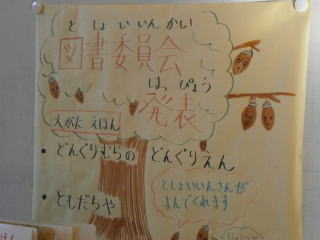 としょいいんかい
図書委員会
はっぴょう
発表
大がた えほん
• どんぐりむらの どんぐりえん
• ともだちや
としょいいんさんが
よんでくれます